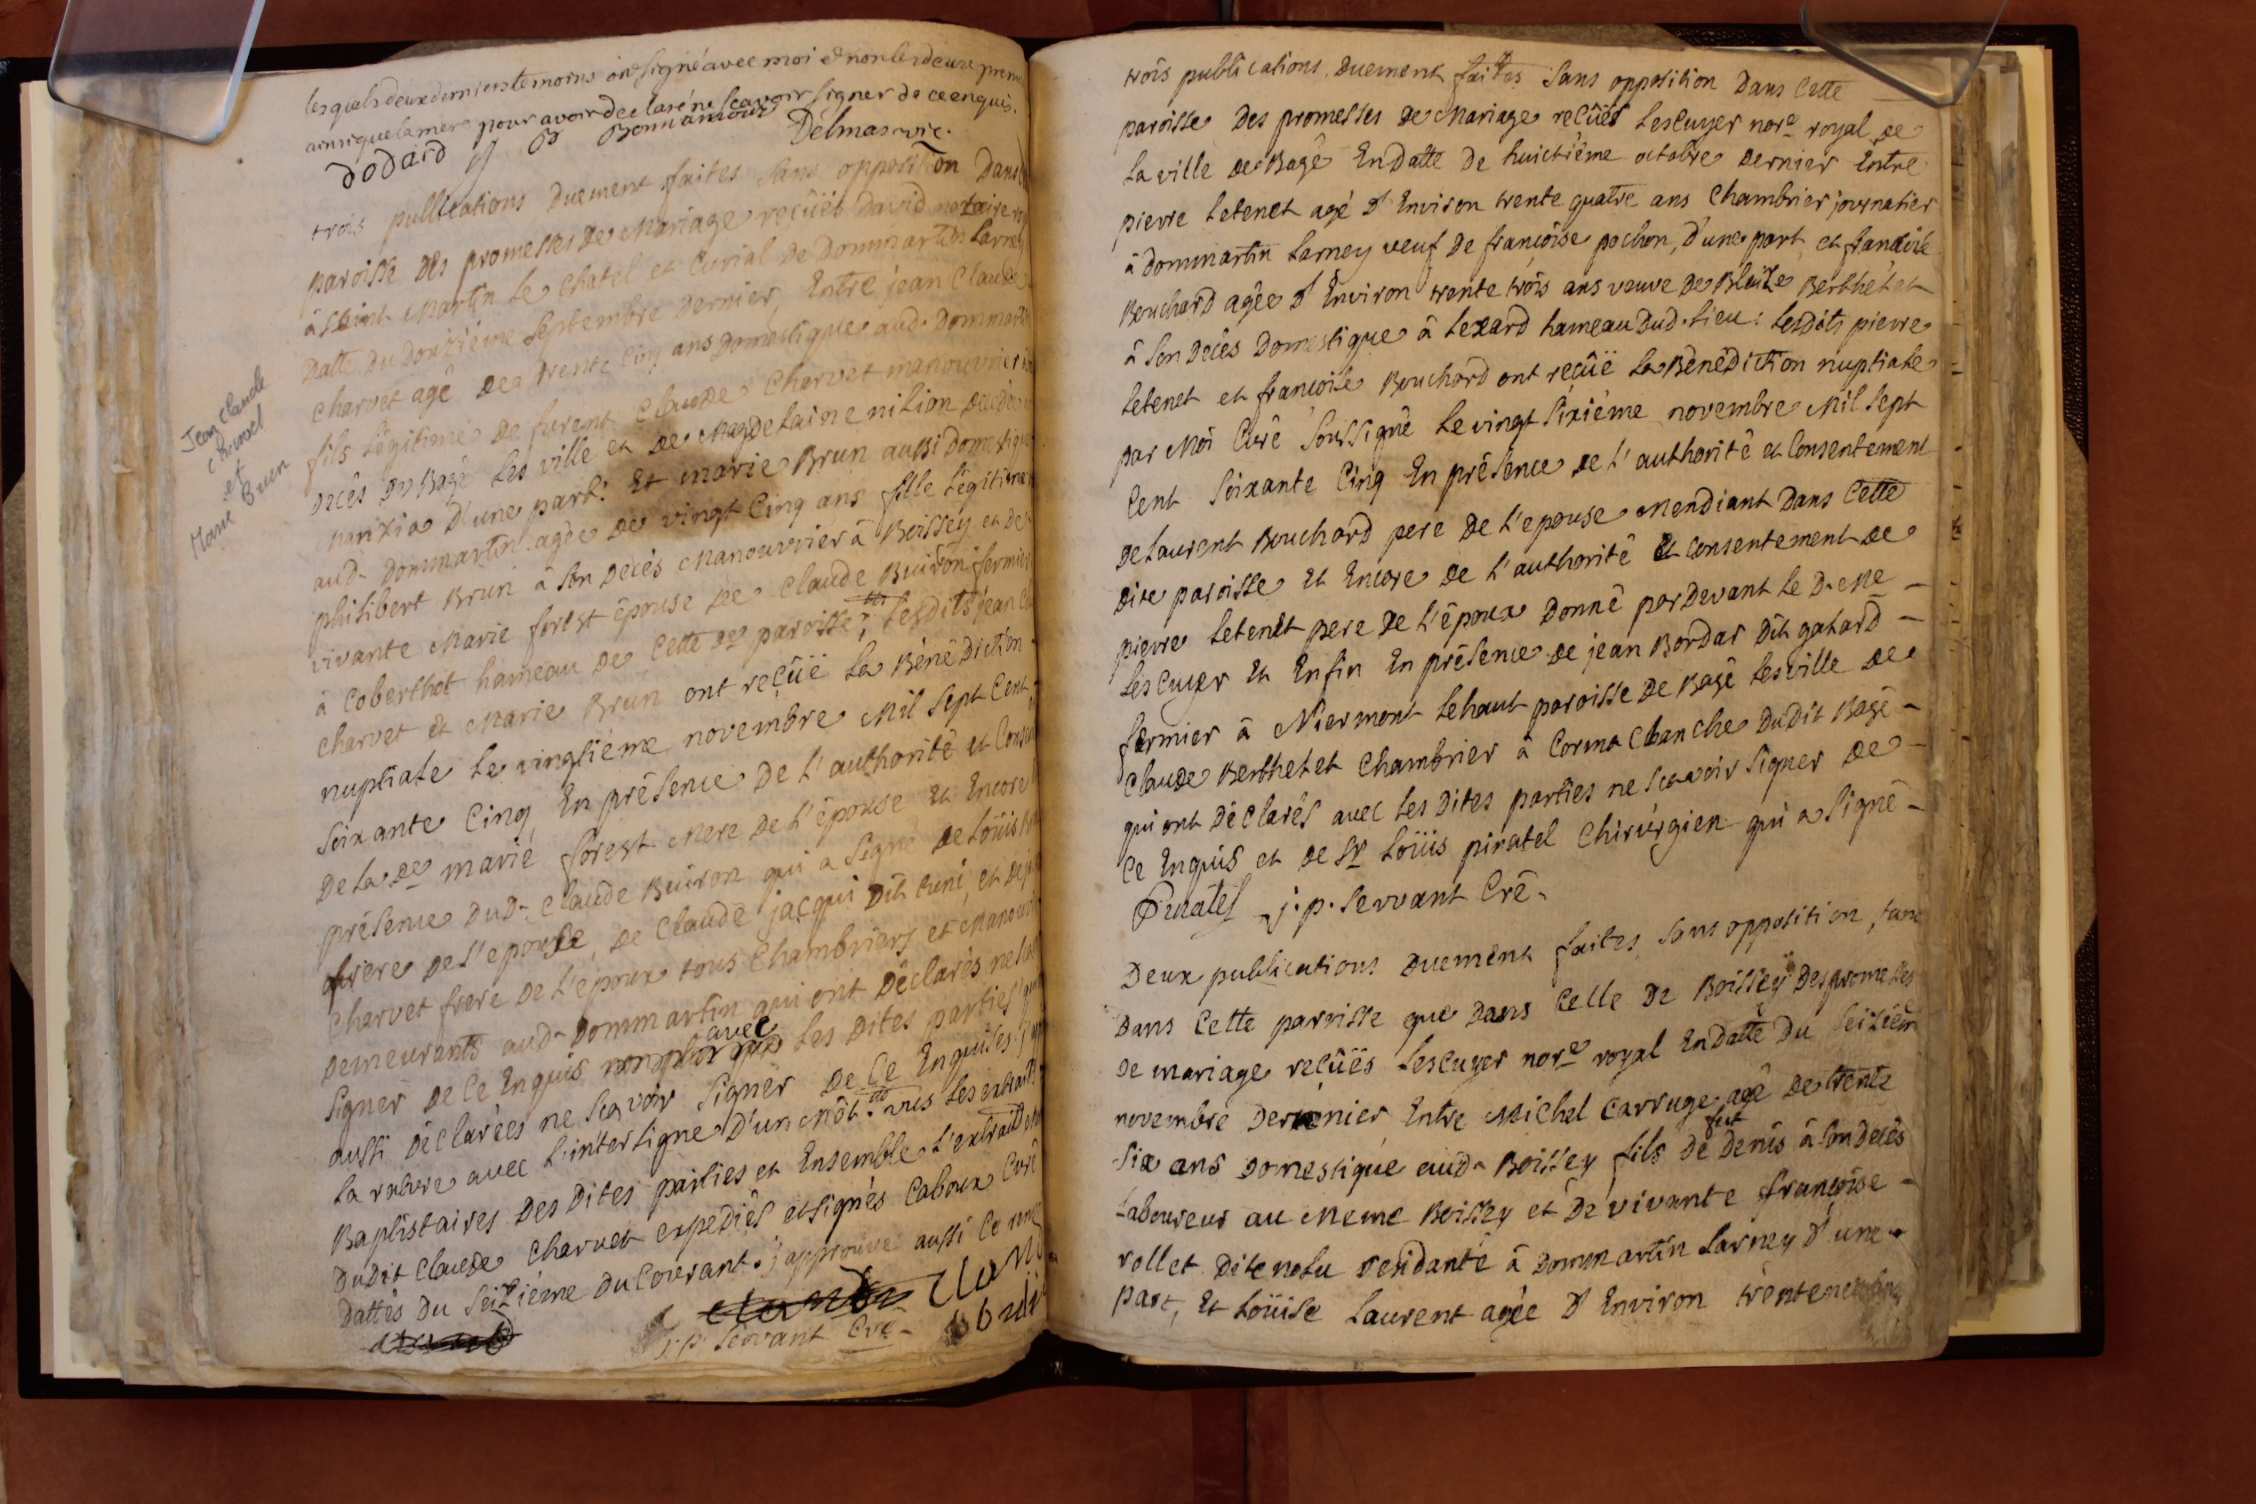 les quels deux derniers temoins ont signé avec moi et non les deux prem
ainsi que la mere pour avoir declaré ne scavoir signer de ce enquis.
Dodard J B Bonnamour Delmas vic.
trois publications Duement faites sans opposition Dans
paroisse Des promesses De Mariage reçûës David notaire
à saint Martin le Chatel et Curial de Dommartin Larney
Datte du Douzième Septembre Dernier, Entre jean Claude
Charvet agé De trente Cinq ans Domestique aud. Dommartin
fils Légitime De furent Claude Charvet manouvrier
Décès Du Bagé Les ville et De Magdelaine nilion
Manzia D'une part: Et marie Brun aussi Domestique
aud. Dommartin agée De vingt Cinq ans fille Légitime
philibert Brun à son Décès Manouvrier à Boissey et De
vivante Marie forest épouse De Claude Buiron fermier
à Coberthot hameau De Cette De paroisse; Lesdits jean
Charvet et Marie Brun ont reçûë La Bénédiction
nuptiale Le vingtième novembre Mil Sept Cent
soixante Cinq En présence De L'authorité et
De La De marie forest Mere De L'épouse Et Encore
présence Dud. Claude Buiron qui a Signé De Loüis
frère De L'epouse, De Claude jacqui Dit Cuni, et
Charvet frere De L'epoux tous Chambriers et
Demeurants aud. Dommartin qui ont Déclarés ne
signer De Ce Enquis avec Les Dites parties
aussi Déclarées ne sçavoir signer De Ce Enquises.
La rature avec L'interligne D'un Môt. vus Les extraits
Baptistaires Des Dites parties et Ensemble L'extrait
Dudit Claude Charvet expediés et signés Caboux Curé
Dattés Du Seizième Du Courant. j'approuve aussi Ce
j.p. Servant Cré.
Jean Claude
Charvet
et
Marie Brun
trois publications Duement faites Sans opposition Dans Cette
paroisse Des promesses De Mariage reçûës Lescuyer nore royal De
La ville De Bagé En Datte De huictième octobre Dernier Entre
pierre Letenet agé D'Environ trente quatre ans Chambrier journalier
à Dommartin Larney veuf De françoise pochon, D'une part, et francoise
Bouchard agée D'Environ trente trois ans veuve De Blaise Berthelet
à Son Decès Domestique à Lexard hameau Dud. Lieu: Lesdits pierre
Letenet et françoise Bouchard ont reçûë La Bénédiction nuptiale
par Moi Curé Soussigné Le vingt Sixième novembre Mil Sept
Cent Soixante Cinq En présence De L'authorité et Consentement
De Laurent Bouchard pere De L'epouse Mendiant Dans Cette
Dite paroisse Et Encore De L'authorité Et Consentement De
pierre Letenet pere De L'époux Donné par Devant Le D. Me
Lescuyer Et Enfin En présence De jean Bordar Dit gatard
fermier à Niermont Lehaut paroisse De Bagé Lesville De
Claude Berthelet Chambrier à Corma Chanche Dudit Bagé
qui ont Déclarés avec Les Dites parties ne Scavoir Signer De
Ce Enquis et De Sr Loüis piratel Chirurgien qui a Signé
Piratel j.p. Servant Cré.
Deux publications Duement faites Sans opposition, tant
Dans Cette paroisse que Dans Celle De Boissey Des promesses
De mariage reçûës Lescuyer nore royal En Datte Du Seizièm
novembre Dernier Entre Michel Carruge agé De trente
Six ans Domestique aud. Boissey fils De fut Denis à Son Decès
Laboureur au Meme Boissey et De vivante françoise
rollet Dite resdante à Dommartin Larney D'une
part, Et Loüise Laurent agée D'Environ trente